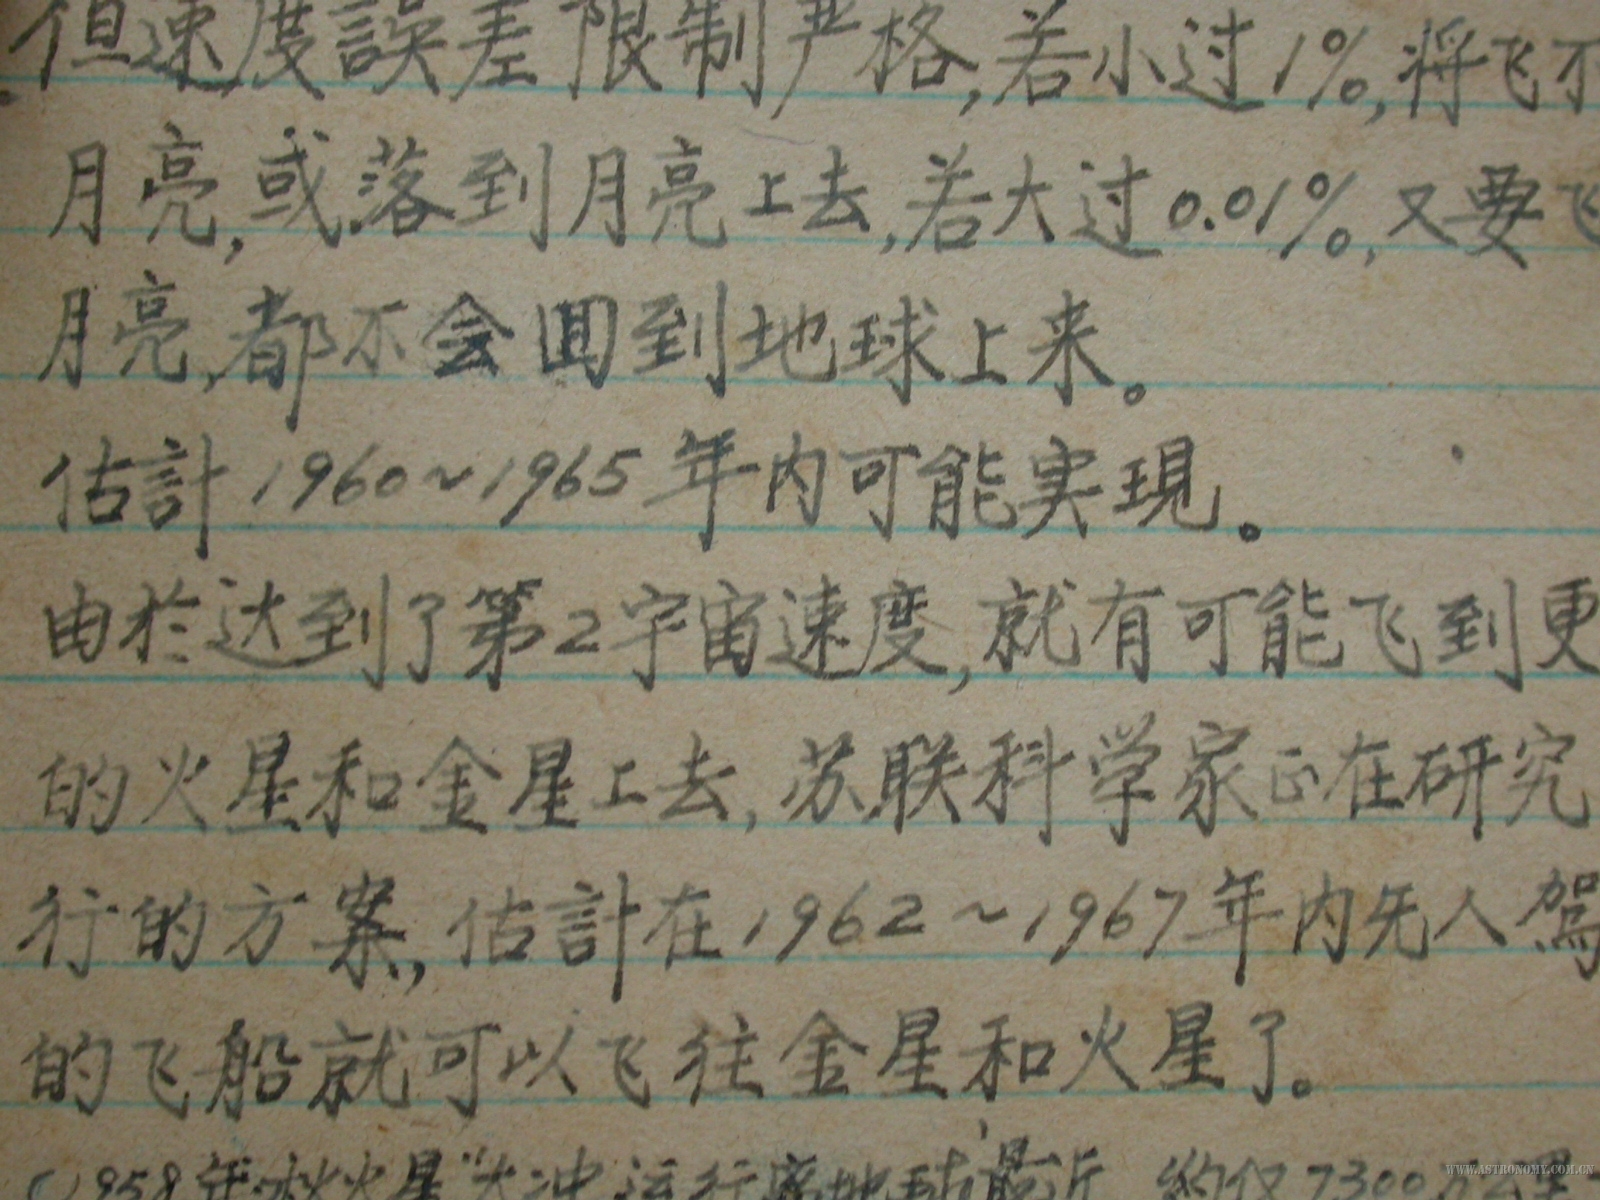 但速度誤差限制严格,若小过1%,将飞不
月亮,或落到月亮上去,若大过0.01%,又要飞
月亮,都不会囬到地球上来。
估計1960~1965年内可能实現。
由於达到了第2宇宙速度,就有可能飞到更
的火星和金星上去,苏联科学家正在研究
行的方案,估計在1962~1967年内无人駕
的飞船就可以飞往金星和火星了。
(1958年秋火星大冲运行离地球最近,約仅7300万公里
WWW.ASTRONOMY.COM.CN